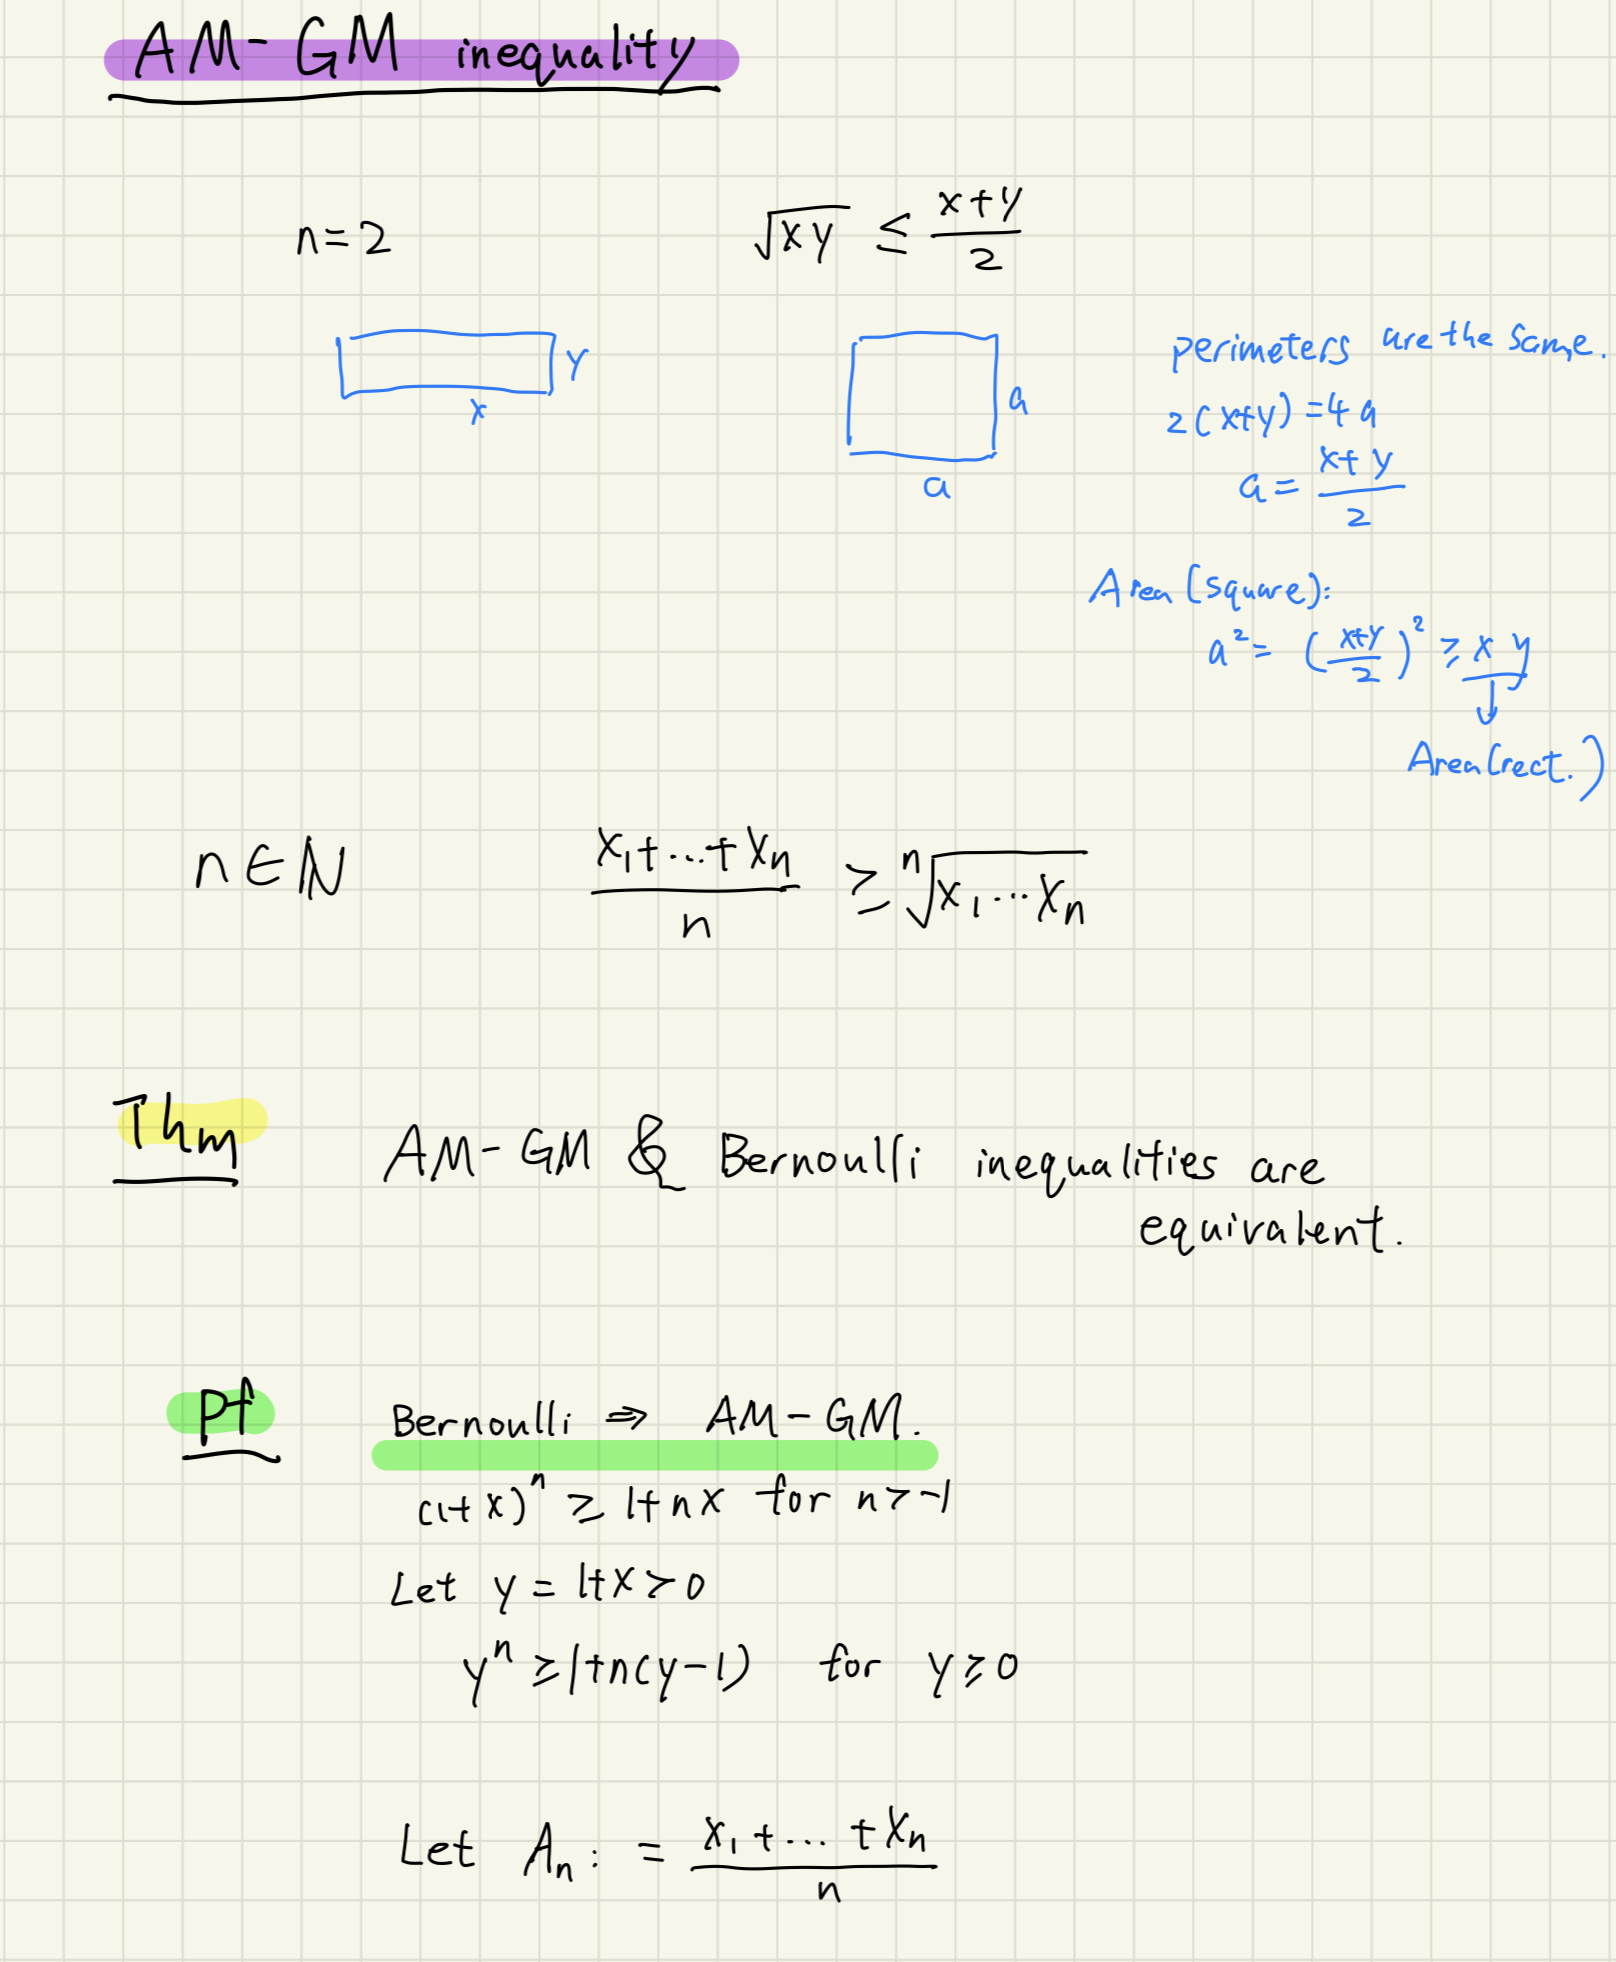 AM-GM inequality
n=2
√xy ≤ (x+y)/2
y
x
a
a
perimeters are the same.
2(x+y)=4a
a= (x+y)/2
Area (square):
a²= ((x+y)/2)² ≥ xy
↓
Area(rect.)
n∈ℕ
(x₁+...+xₙ)/n ≥ ⁿ√x₁...xₙ
Thm
AM-GM & Bernoulli inequalities are
equivalent.
Pf
Bernoulli ⇒ AM-GM.
(1+x)ⁿ ≥ 1+nx for n>-1
Let y=1+x>0
yⁿ ≥1+n(y-1) for y≥0
Let Aₙ:= (x₁+...+xₙ)/n